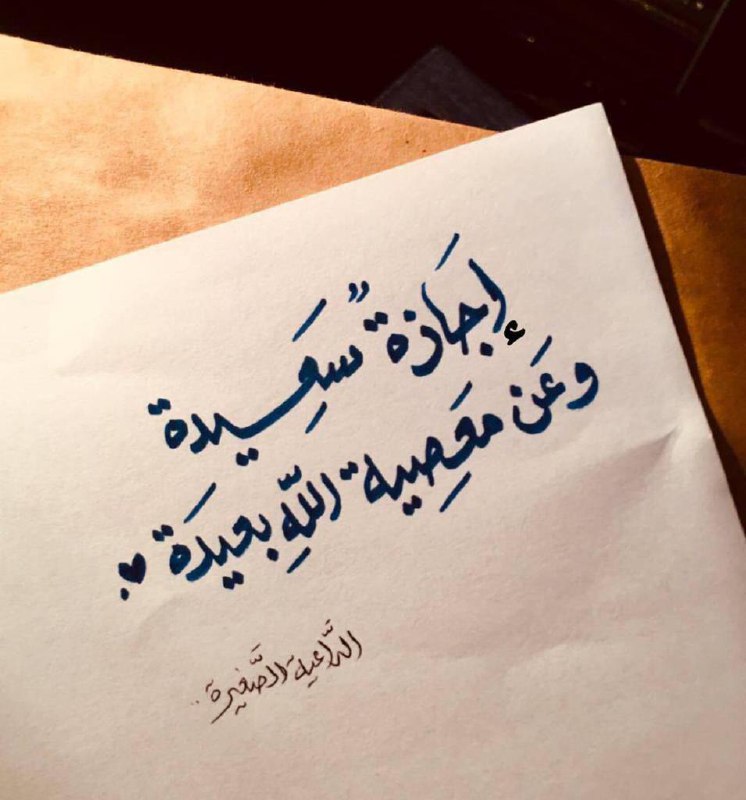 إجَازةً سَعِيدة
وعَن معَصِية اللَّهِ بعيدَة
الدَّاعية الصَّغيرة ..